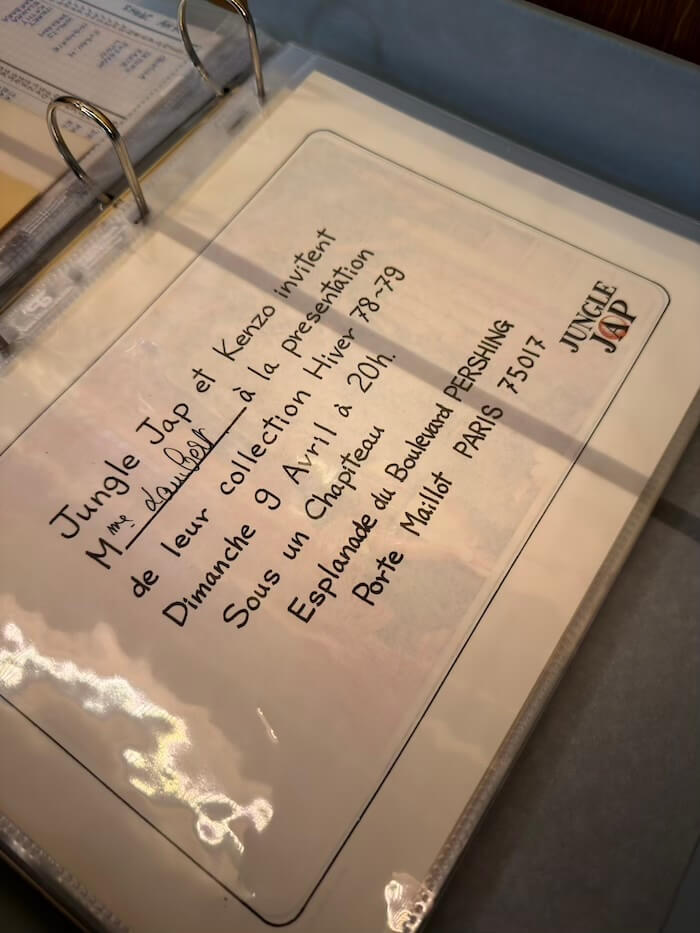 Jungle Jap et Kenzo invitent
Mme Lambert à la presentation
de leur collection Hiver 78-79
Dimanche 9 Avril à 20h.
Sous un Chapiteau
Esplanade du Boulevard PERSHING
Porte Maillot PARIS 75017
JUNGLE
JAP